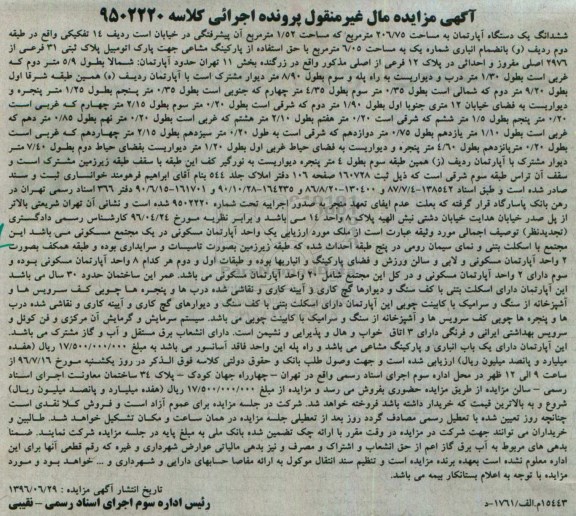 آگهی مزایده مال غیرمنقول پرونده اجرائی کلاسه ۹۵۰۲۲۲۰
ششدانگ یک دستگاه آپارتمان به مساحت ۲۰۶/۷۵ مترمربع که مساحت ۱/۵۲ مترمربع آن پیشرفتگی در خیابان است ردیف ۱۴ تفکیکی واقع در طبقه
دوم ردیف (و) بانضمام انباری شماره یک به مساحت ۶/۰۵ مترمربع با حق استفاده از پارکینگ مشاعی جهت پارک اتومبیل پلاک ثبتی ۳۱ فرعی از
۲۹۷۶ اصلی مفروز و احداثی در پلاک ۱۲ فرعی از اصلی مذکور واقع در زرگنده بخش ۱۱ تهران حدود آپارتمان: شمالا بطول ۵/۹ متر دوم که
غربی است بطول ۱/۳۰ متر درب و دیواریست به راه پله و سوم بطول ۸/۹۰ متر دیوار مشترک است با آپارتمان ردیف (ه) همین طبقه شرقا اول
بطول ۹/۲۰ متر دوم که شمالی است بطول ۰/۳۵ متر سوم بطول ۴/۳۵ متر چهارم که جنوبی است بطول ۰/۳۵ متر پنجم بطول ۱/۲۵ متر پنجره و
دیواریست به فضای خیابان ۱۲ متری جنوبا اول بطول ۱/۹۰ متر دوم که شرقی است بطول ۰/۲۰ متر سوم بطول ۲/۱۵ متر چهارم که غربی است
۰/۲۰ متر پنجم بطول ۱/۵ متر ششم که شرقی است ۰/۲۰ متر هفتم بطول ۲/۱۰ متر هشتم که غربی است بطول ۰/۲۰ متر نهم بطول ۰/۸۵ متر دهم که
غربی است بطول ۱/۱۰ متر یازدهم بطول ۰/۷۵ متر دوازدهم که شرقی است به طول ۰/۲۰ متر سیزدهم بطول ۲/۱۵ متر چهاردهم که غربی است
بطول ۰/۲۰ مترپانزدهم بطول ۴/۶۰ متر پنجره و دیواریست به فضای حیاط غربی اول بطول ۱/۲۰ متر دیواریست بفضای حیاط دوم بطول ۷/۴۰ متر
دیوار مشترک با آپارتمان ردیف (ز) همین طبقه سوم بطول ۴ متر پنجره دیواریست به نورگیر کف این طبقه با سقف طبقه زیرزمین مشترک است و
سقف آن تراس طبقه سوم شرقی است که ذیل ثبت ۱۶۰۷۲۸ صفحه ۱۰۶ دفتر املاک جلد ۵۴۴ بنام آقای ابراهیم فرهومند خوانساری ثبت و سند
صادر شده است و طبق اسناد ۱۳۸۵۴۲-۸۷/۷/۴ و ۱۳۰۴۰۰-۸۶/۸/۲۰ و ۱۶۴۳۳۵-۹۰/۱۰/۲۸ و ۱۶۱۷۰۱-۹۰/۶/۱۵ دفتر ۳۶۶ اسناد رسمی تهران در
رهن بانک پاسارگاد قرار گرفته که بعلت عدم ایفای تعهد منجر به صدور اجراییه تحت شماره ۹۵۰۲۲۲۰ شده است و نشانی آن تهران شریعتی بالاتر
از پل صدر خیابان هدایت خیابان دشتی نبش الهیه پلاک ۸۱ واحد ۱۴ می باشد و برابر نظریه مورخ ۹۶/۰۴/۲۴ کارشناس رسمی دادگستری
(تجدیدنظر) توصیف اجمالی مورد وثیقه عبارت است از ملک مورد ارزیابی یک واحد آپارتمان مسکونی در یک مجتمع مسکونی می باشد این
مجتمع با اسکلت بتنی و نمای سیمان رومی در پنج طبقه احداث شده که طبقه زیرزمین بصورت تاسیسات و سرایداری بوده و طبقه همکف بصورت
۲ واحد آپارتمان مسکونی و لابی و سالن ورزش و فضای پارکینگ و انباریها بوده و طبقات اول و دوم هر کدام ۸ واحد آپارتمان مسکونی بوده و
سوم دارای ۲ واحد آپارتمان مسکونی و در کل این مجتمع شامل ۲۰ واحد آپارتمان مسکونی می باشد. عمر این ساختمان حدود ۳۰ سال می باشد
این آپارتمان دارای اسکلت بتنی با کف سنگ و دیوارها گچ کاری و آیینه کاری و نقاشی شده درب ها و پنجره ها چوبی کف سرویس ها و
آشپزخانه از سنگ و سرامیک با کابینت چوبی این آپارتمان دارای اسکلت بتنی با کف سنگ و دیوارهای گچ کاری و آیینه کاری و نقاشی شده درب
ها و پنجره ها چوبی کف سرویس ها و آشپزخانه از سنگ و سرامیک با کابینت چوبی می باشد. سیستم سرمایش و گرمایش آن مرکزی و فن کوئل و
سرویس بهداشتی ایرانی و فرنگی دارای ۳ اتاق خواب و هال و پذیرایی و نشیمن است. دارای انشعاب برق مستقل و آب و گاز مشترک می باشد.
این آپارتمان دارای یک باب انباری و پارکینگ مشاعی می باشد و راه پله این واحد فاقد آسانسور می باشد به مبلغ ۱۷/۵۰۰/۰۰۰/۰۰۰ ریال (هفده
میلیارد و پانصد میلیون ریال) ارزیابی شده است و جهت وصول طلب بانک و حقوق دولتی کلاسه فوق الذکر در روز یکشنبه مورخ ۹۶/۷/۱۶ از
ساعت ۹ الی ۱۲ ظهر در محل اداره سوم اجرای اسناد رسمی واقع در تهران - چهارراه جهان کودک - پلاک ۳۴ ساختمان معاونت اجرای اسناد
رسمی - سالن مزایده از طریق مزایده حضوری بفروش می رسد و مزایده از مبلغ ۱۷/۵۰۰/۰۰۰/۰۰۰ ریال (هفده میلیارد و پانصد میلیون ریال)
شروع و به بالاترین قیمت که خریدار داشته باشد فروخته خواهد شد. شرکت در جلسه مزایده برای عموم آزاد است و فروش کلا نقدی است
چنانچه روز تعیین شده با تعطیل رسمی مصادف گردد روز بعد از تعطیلی جلسه مزایده در همان ساعت و مکان تشکیل خواهد شد. طالبین و
خریداران می توانند جهت شرکت در مزایده در وقت مقرر با ارائه چک تضمین شده بانک ملی به مبلغ پایه در جلسه مزایده شرکت نمایند. ضمنا
بدهی های مربوط به آب برق گاز اعم از حق انشعاب و اشتراک و مصرف و نیز بدهی مالیاتی عوارض شهرداری و غیره که رقم قطعی آنها برای این
اداره معلوم نشده است بعهده برنده مزایده است و تنظیم سند انتقال موکول به ارائه مفاصا حسابهای دارایی و شهرداری و ... خواهد بود و مورد
مزایده با توجه به اعلام بستانکار بیمه می باشد.
تاریخ انتشار آگهی مزایده : ۱۳۹۶/۰۶/۲۹
رئیس اداره سوم اجرای اسناد رسمی - نقیبی
۱۵۴۴۳م.الف/۱۷۶۱-د